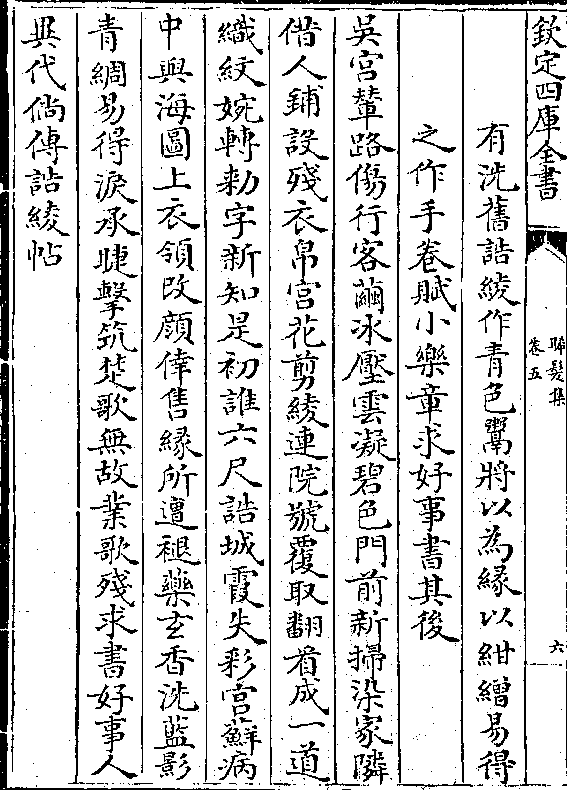 欽定四庫全書
晞髮集
卷五
六
有洗舊誥綾作青色鬻將以為縁以紺繒易得
之作手卷賦小樂章求好事書其後
吳宮輦路傷行客繭冰壓雲凝碧色門前新掃染家隣
借人鋪設殘衣帛宮花剪綾連院號覆取翻看成一道
織紋婉轉勅字新知是初誰六尺誥城霞失彩宮蘚病
中與海圖上衣領改顔倖售緣所遭褪藥玄香洗藍影
青綢易得淚承睫擊筑楚歌無故業歌殘求書好事人
異代倘傳誥綾帖